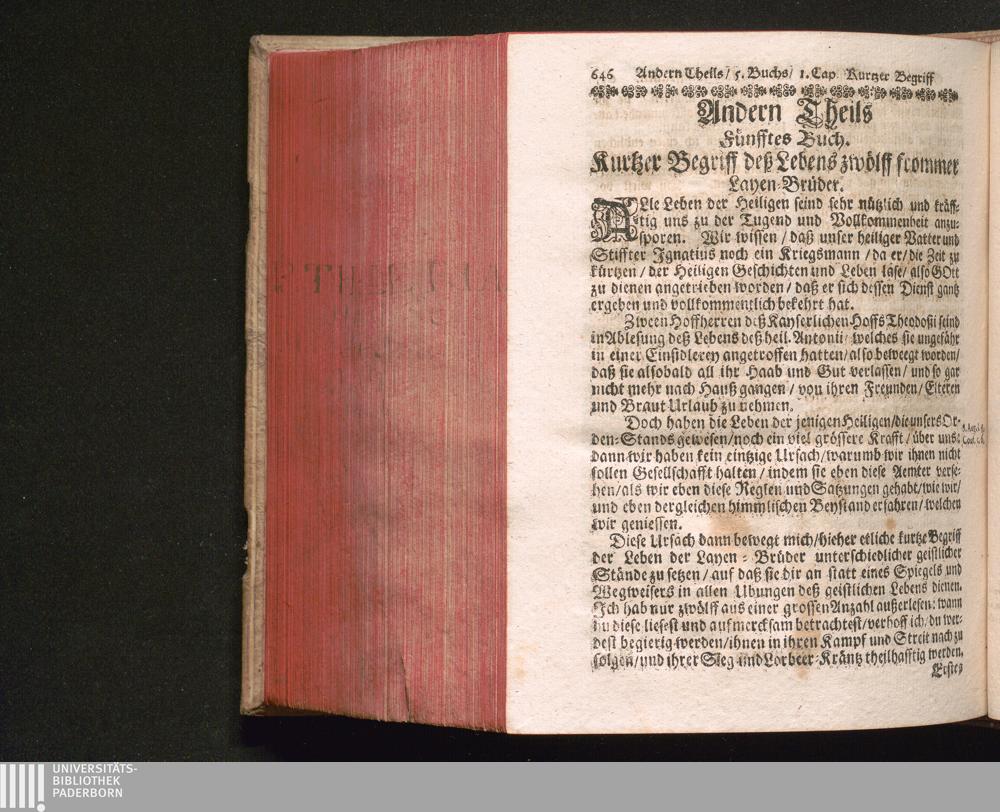 646 Andern Theils / 5. Buchs / 1. Cap. Kurtzer Begriff
Andern Theils
Fünfftes Buch.
Kurtzer Begriff deß Lebens zwölff frommer
Layen-Brüder.
ALle Leben der Heiligen seind sehr nützlich und kräff-
tig uns zu der Tugend und Vollkommenheit anzu-
sporen. Wir wissen / daß unser heiliger Vatter und
Stiffter Ignatius noch ein Kriegsmann / da er / die Zeit zu
kürtzen / der Heiligen Geschichten und Leben läse / also GOtt
zu dienen angetrieben worden / daß er sich dessen Dienst gantz
ergeben und vollkommentlich bekehrt hat.
Zween Hoffherren deß Kayserlichen Hoffs Theodosii seind
in Ablesung deß Lebens deß heil. Antonii / welches sie ungefähr
in einer Einsidlerey angetroffen hatten / also beweegt worden /
daß sie alsobald all ihr Haab und Gut verlassen / und so gar
nicht mehr nach Hauß gangen / von ihren Freunden / Elteren
und Braut Urlaub zu nehmen.
Doch haben die Leben der jenigen Heiligen / die unsers Or-
den-Stands gewesen / noch ein viel grössere Krafft / über uns:
dann wir haben kein eintzige Ursach / warumb wir ihnen nicht
sollen Gesellschafft halten / indem sie eben diese Aemter verse-
hen / als wir eben diese Reglen und Satzungen gehabt / wie wir /
und eben dergleichen himmlischen Beystand erfahren / welchen
wir geniessen.
Diese Ursach dann bewegt mich / hieher etliche kurtze Begriff
der Leben der Layen-Brüder unterschiedlicher geistlicher
Stände zu setzen / auf daß sie dir an statt eines Spiegels und
Wegweisers in allen Ubungen deß geistlichen Lebens dienen.
Ich hab nur zwölff aus einer grossen Anzahl außerlesen: wann
du diese liesest und aufmercksam betrachtest / verhoff ich / du wer-
dest begierig werden / ihnen in ihren Kampf und Streit nach zu
folgen / und ihrer Sieg und Lorbeer-Kräntz theilhafftig werden.
Erstes
UNIVERSITÄTS-
BIBLIOTHEK
PADERBORN